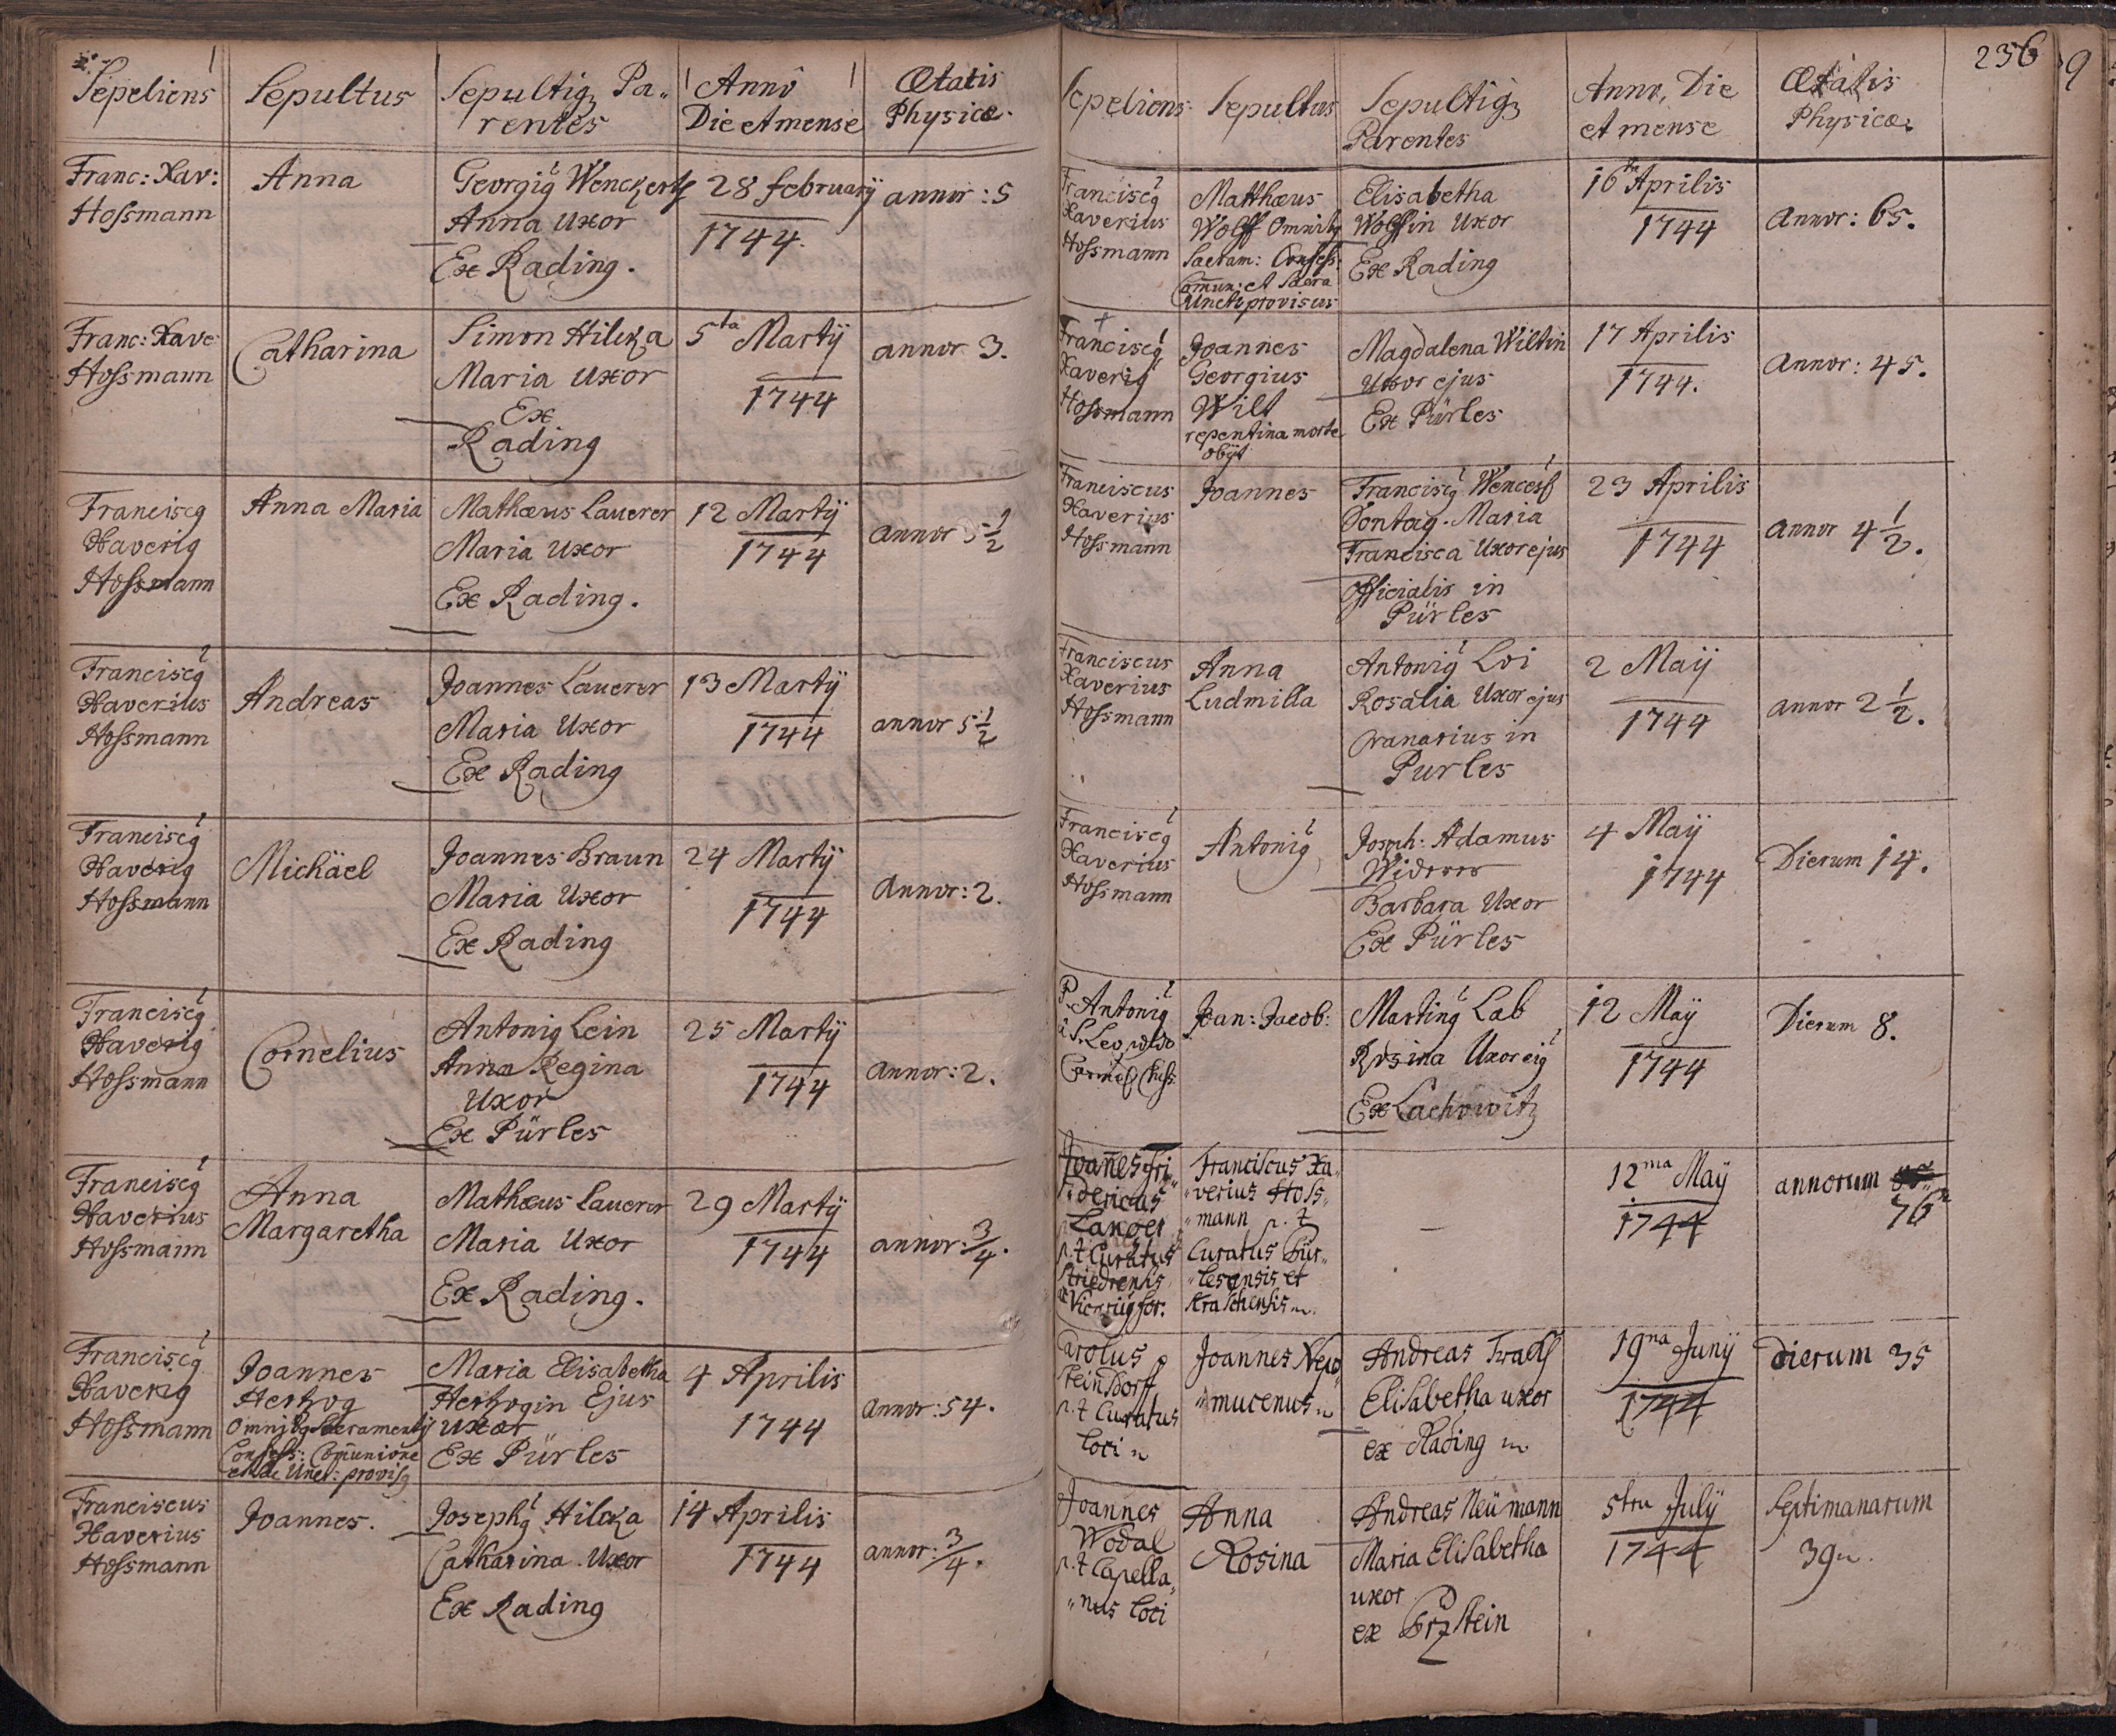 Sepeliens
Sepultus
Sepultiq Pa„
rentes
Anno
Die et mense
Ætatis
Physicæ.
Franc: Xav:
Hossmann
Anna
Georgiq Wenckertz
Anna Uxor
Ex Rading.
28 february
1744.
annor: 5
Franc: Xave
Hossmann
Catharina
Simon Hilcka
Maria Uxor
Ex
Rading
5ta Martÿ
1744
annor 3.
Franciscq
Xaveriq
Hossmann
Anna Maria
Mathæus Lauerer
Maria Uxor
Ex Rading.
12 Martÿ
1744
annor 5 1/2
Franciscq
Xaverius
Hossmann
Andreas
Joannes Lauerer
Maria Uxor
Ex Rading
13 Martÿ
1744
annor 5 1/2
Franciscq
Xaveriq
Hossmann
Michäel
Joannes Braun
Maria Uxor
Ex Rading
24 Martÿ
1744
Annor: 2.
Franciscq
Xaveriq
Hossmann
Cornelius
Antoniq Lein
Anna Regina
Uxor
Ex Pürles
25 Martÿ
1744
Annor: 2.
Franciscq
Xaverius
Hossmann
Anna
Margaretha
Mathæus Lauerer
Maria Uxor
Ex Rading.
29 Martÿ
1744
annor: 3/4.
Franciscq
Xaveriq
Hossmann
Joannes
Hertzog
Omnibq Sacramentÿ
Confess: Comunione
Unct: provisq
Maria Elisabetha
Hertzogin Ejus
Uxor
Ex Pürles
4 Aprilis
1744
Annor: 54.
Franciscus
Xaverius
Hossmann
Joannes.
Josephq Hilcka
Catharina Uxor
Ex Rading
14 Aprilis
1744
annor: 3/4.
236
9
Sepeliens
Sepultus
Sepultiq
Parentes
Anno, Die
et mense
Ætatis
Physicæ.
Franciscq
Xaverius
Hossmann
Matthæus
Wolff Omnibq
Sacram: Confess:
Comun: et Sacra
Unct: provisus
Elisabetha
Wolffin Uxor
Ex Rading
16ta Aprilis
1744
Annor: 65.
Franciscq
Xaveriq
Hossmann
Joannes
Georgius
Wilt
repentina morte
obÿt
Magdalena Wiltin
Uxor ejus
Ex Pürles
17 Aprilis
1744.
Annor: 45.
Franciscus
Xaverius
Hossmann
Joannes
Franciscq Wencesl
Sontag. Maria
Francisca Uxor ejus
Officialis in
Pürles
23 Aprilis
1744
Annor 4 1/2.
Franciscus
Xaverius
Hossmann
Anna
Ludmilla
Antoniq Loi
Rosalia Uxor ejus
Granarius in
Purles
2 Maÿ
1744
annor 2 1/2.
Franciscq
Xaverius
Hossmann
Antoniq
Joseph: Adamus
Barbara Uxor
Ex Pürles
4 Maÿ
1744
Dierum 14.
P. Antoniq
à S. Leopoldo
Joan: Jacob:
Martinq Lab
Rosina Uxor eiq
Ex Lachowitz
12 Maÿ
1744
Dierum 8.
Joannes Fri„
dericus
Langer
p.t. Curatus
Franciscus Xa„
„verius Hoss„
„mann p.t.
Curatus Pür„
„lesensis et
Kraschensis
—
12ma Maÿ
1744
annorum
76
Carolus
Steinsdorf
p.t. Curatus
loci
Joannes Nepo„
„mucenus
Andreas
Elisabetha uxor
ex Rading
19na Junÿ
1744
Dierum 35
Joannes
Wodal
p.t. Capella„
„nus loci
Anna
Rosina
Andreas Neümann
Maria Elisabetha
uxor
ex Pirzstein
5ta Julÿ
1744
Septimanarum
39